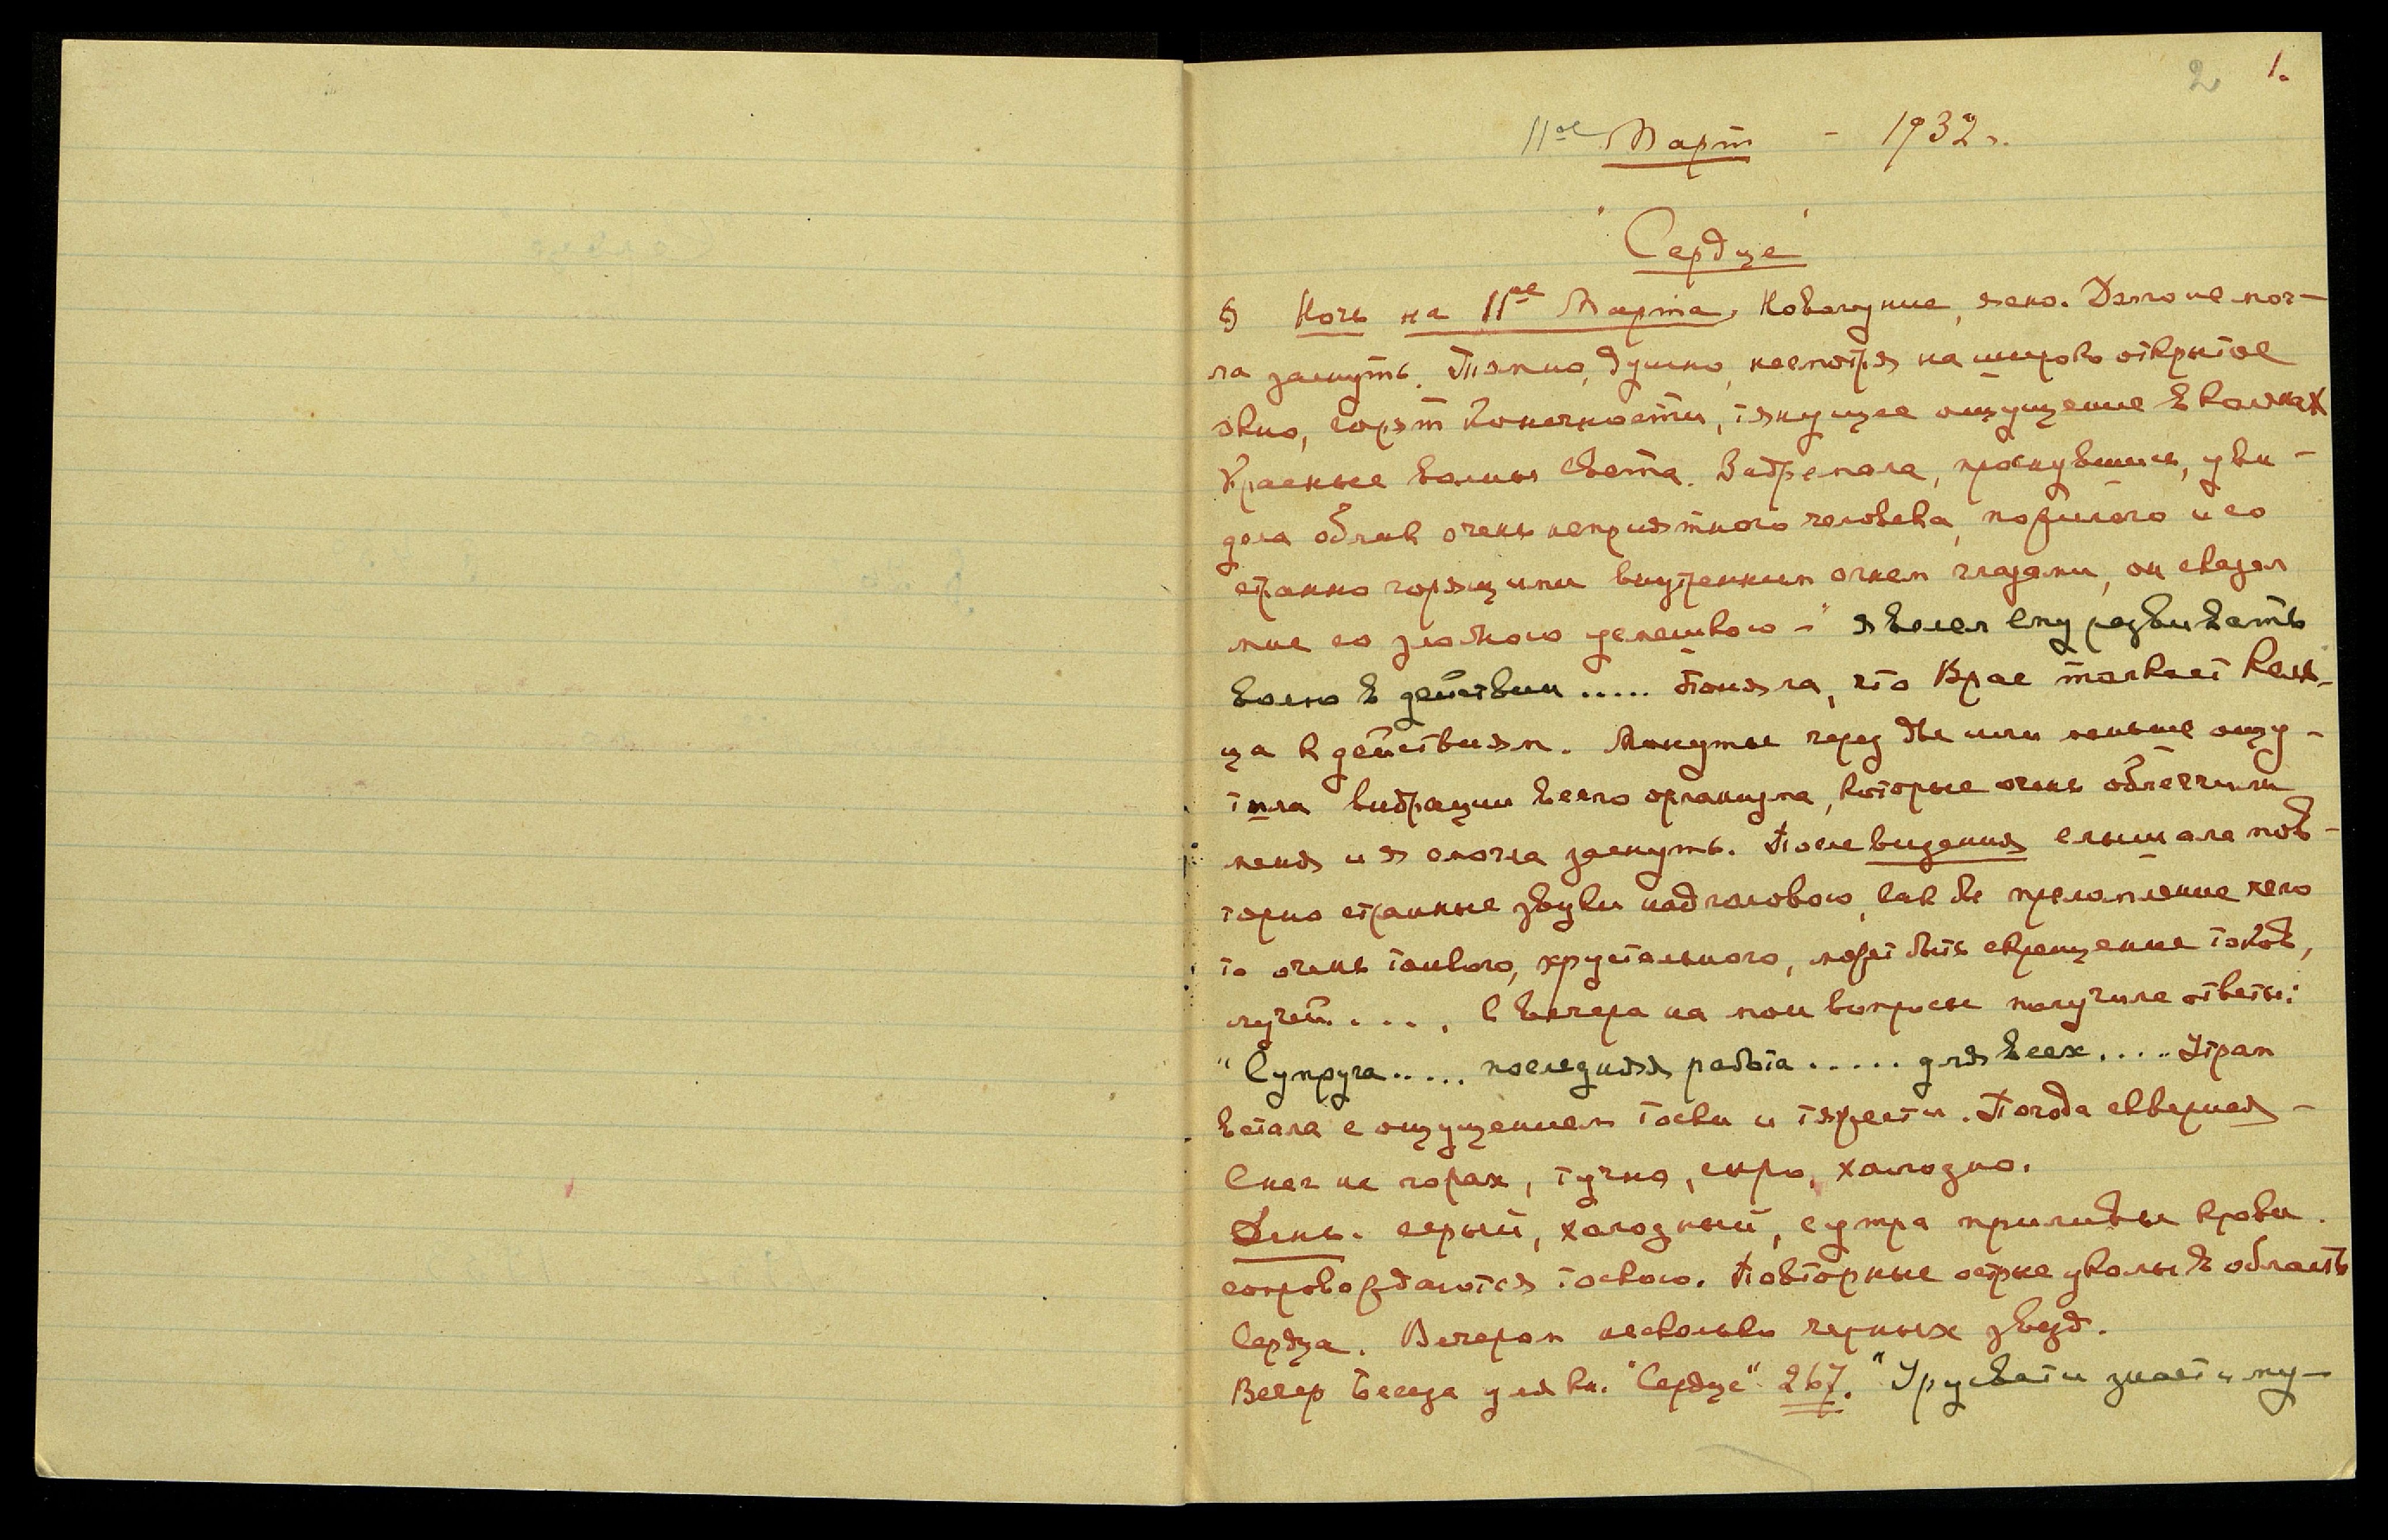 2 1.
11ое Март - 1932 г.
"Сердце"
§ Ночь на 11ое Марта. Новолуние, ясно. Долго не мог-
ла заснуть. Темно, душно, несмотря на широко открытое
окно, горят конечности, тянущее ощущение в коленах
Красные волны света. Задремала, проснувшись, уви-
дела облик очень неприятного человека, пожилого и со
странно горящими внутренним огнем глазами, он сказал
мне со злобною усмешкою – "я велел ему развивать
волю в действии ..... Поняла, что Враг толкает
ца к действиям. Минуты через две или меньше ощу-
тила вибрации всего организма, которые очень облегчили
меня и я смогла заснуть. После видения слышала пов-
торно странные звуки над головою, как бы преломление чего
то очень тонкого, хрустального, может быть скрещение токов,
лучей.... С вечера на мои вопросы получила ответы:
"Супруга..... последняя работа ..... для всех..... Утром
встала с ощущением тоски и тяжести. Погода скверная –
Снег на горах, тучно, сыро, холодно.
День. серый, холодный, с утра приливы крови.
сопровождаются тоскою. Повторные острые уколы в область
Сердца. Вечером несколько черных звезд.
Вечер Беседа для кн. "Сердце" 267. "Урусвати знает и му-